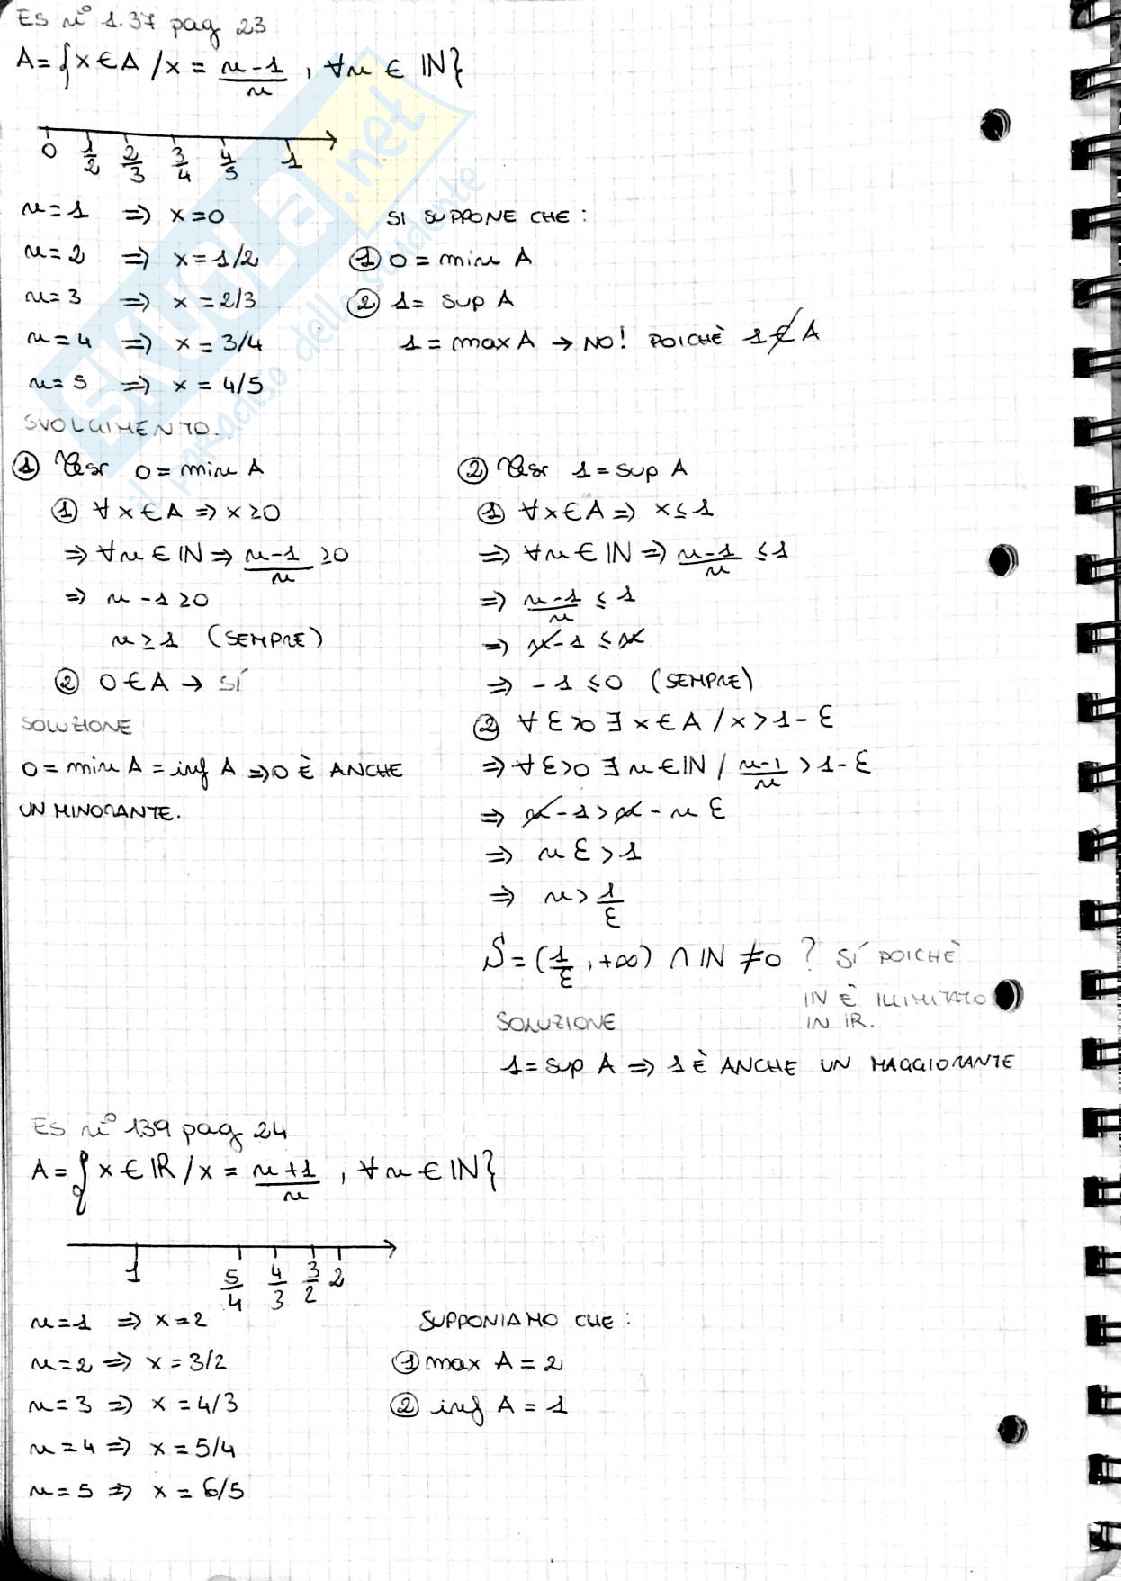 ES n° 1.37 pag 23
A = {x ∈ A / x = n-1/n , ∀n ∈ IN}
0 1/2 2/3 3/4 4/5 1
n=1 => x=0
n=2 => x=1/2
n=3 => x=2/3
n=4 => x=3/4
n=5 => x=4/5
SI SUPPONE CHE:
① 0 = min A
② 1 = sup A
1 = max A → NO! POICHÈ 1 ∉ A
SVOLGIMENTO.
① 0 = min A
① ∀x ∈ A => x ≥ 0
=> ∀n ∈ IN => n-1/n ≥ 0
=> n-1 ≥ 0
n ≥ 1 (SEMPRE)
② 0 ∈ A → SÍ
SOLUZIONE
0 = min A = inf A => 0 È ANCHE
UN MINORANTE.
② 1 = sup A
① ∀x ∈ A => x ≤ 1
=> ∀n ∈ IN => n-1/n ≤ 1
=> n-1/n ≤ 1
=> n-1 ≤ n
=> -1 ≤ 0 (SEMPRE)
② ∀ε>0 ∃ x ∈ A / x > 1-ε
=> ∀ε>0 ∃ n ∈ IN / n-1/n > 1-ε
=> n-1 > n-nε
=> nε > 1
=> n > 1/ε
S = (1/ε, +∞) ∩ IN ≠ 0 ? SÍ POICHÈ
IN È ILLIMITATO
IN IR.
SOLUZIONE
1 = sup A => 1 È ANCHE UN MAGGIORANTE
ES n° 139 pag 24
A = {x ∈ IR / x = n+1/n , ∀n ∈ IN}
1 5/4 4/3 3/2 2
n=1 => x=2
n=2 => x=3/2
n=3 => x=4/3
n=4 => x=5/4
n=5 => x=6/5
SUPPONIAMO CHE:
① max A = 2
② inf A = 1
SKUOLA.net
il paradiso dello studente